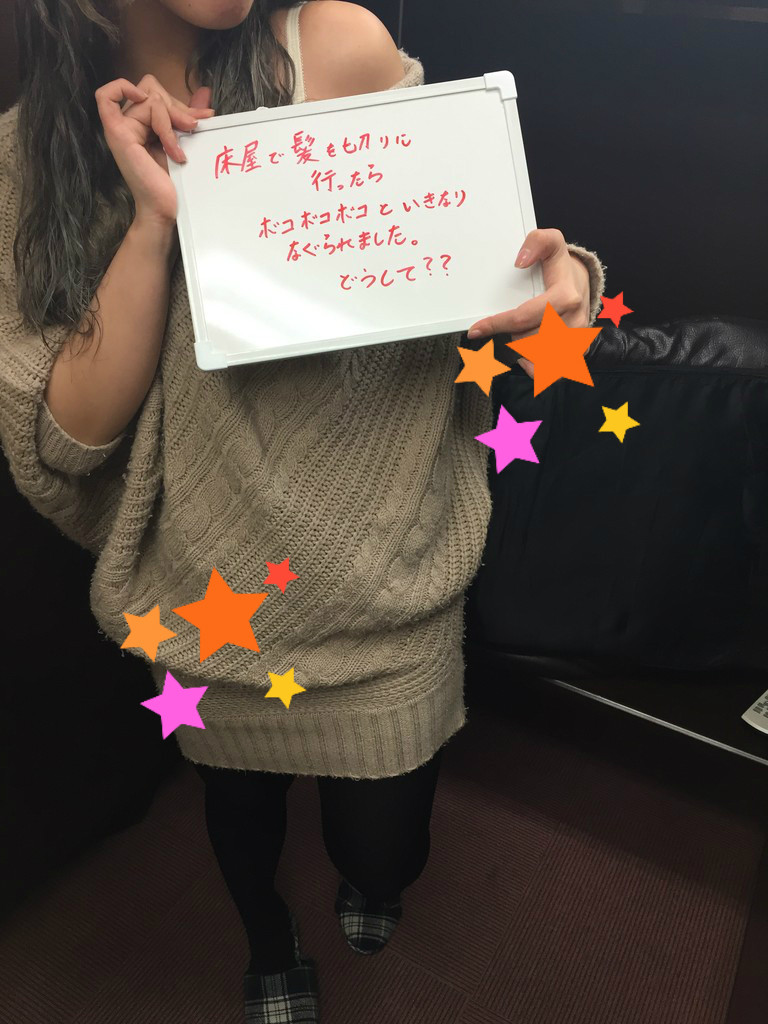 床屋で髪を切りに
行ったら
ボコボコボコといきなり
なぐられました。
どうして??